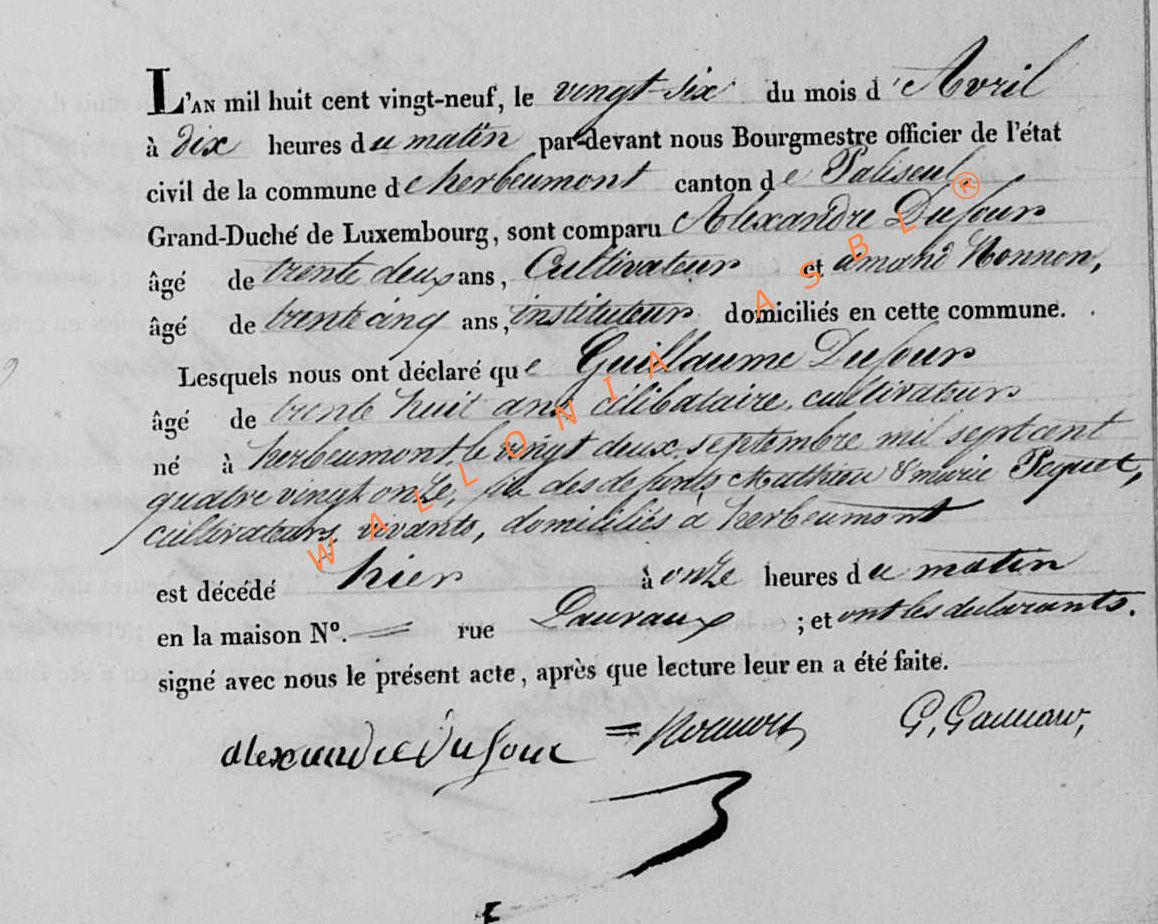 L'AN mil huit cent vingt-neuf, le vingt-six du mois d'Avril
à dix heures du matin par-devant nous Bourgmestre officier de l'état
civil de la commune de herbeumont canton de Paliseul
Grand-Duché de Luxembourg, sont comparu Alexandre Dufour
âgé de trente deux ans, Cultivateur et amand Nonnon,
âgé de trente cinq ans, instituteur domiciliés en cette commune.
Lesquels nous ont déclaré que Guillaume Dufour
âgé de trente huit ans célibataire, cultivateur
né à herbeumont, le vingt deux septembre mil sept cent
quatre vingt onze, fils des defunts Mathieu & marie Pequet,
cultivateurs vivants, domiciliés à herbeumont
est décédé hier à onze heures du matin
en la maison N°. = rue ; et ont les declarants.
signé avec nous le présent acte, après que lecture leur en a été faite.
alexandre Dufour = G,
WALLONIA ASBL ®